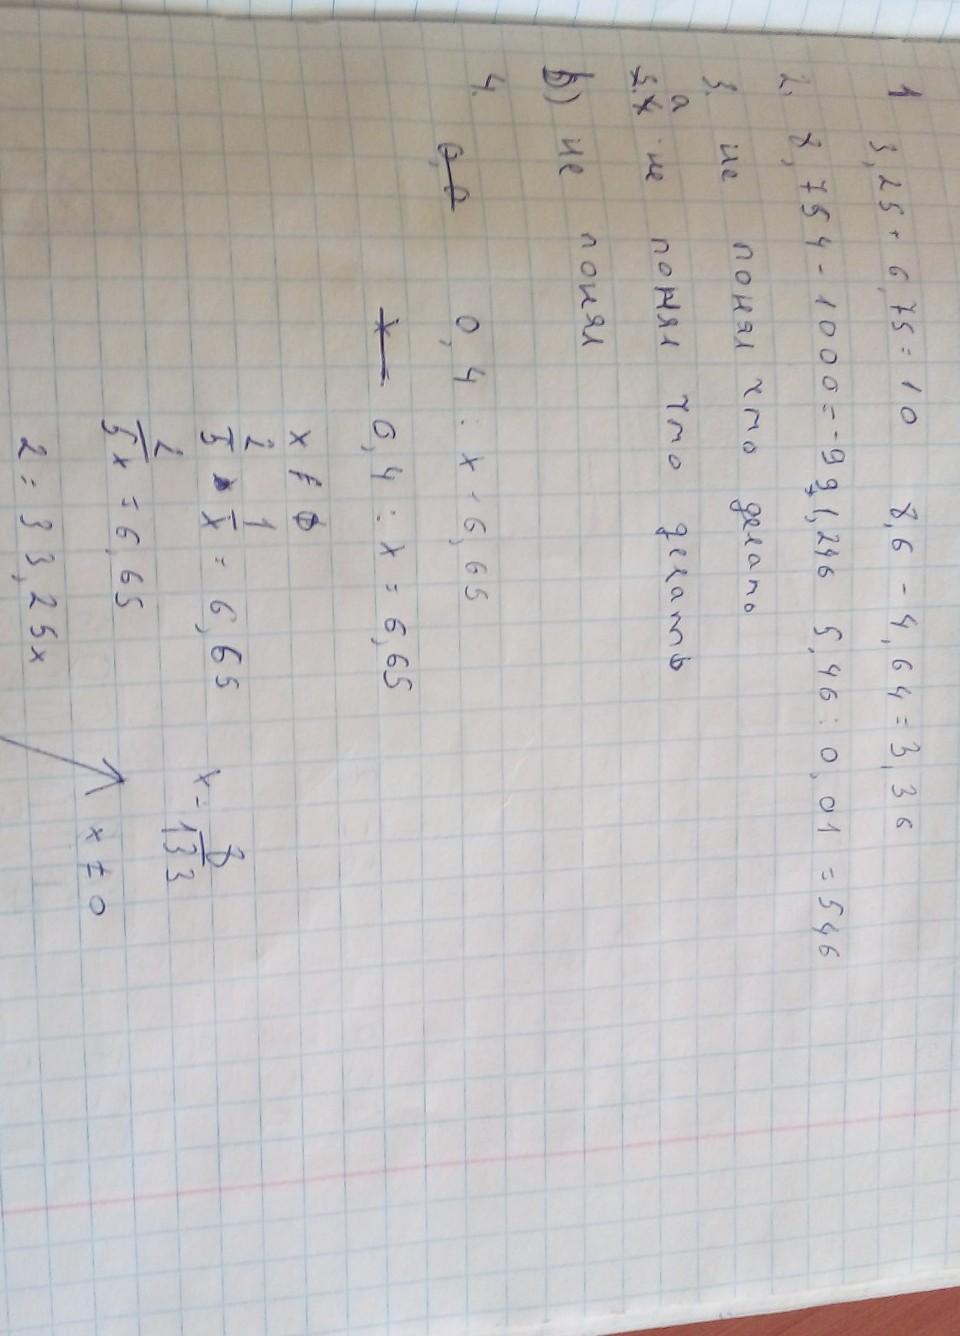 1
3,25+6,75=10 8,6-4,64=3,36
2. 8,754-1000=-991,246 5,46:0,01=546
3. не понял что делать
a не понял что делать
б) не понял
4.
0,4:x=6,65
0,4:x=6,65
x≠0
2/5 × 1/x = 6,65
2/5x = 6,65
2=33,25x
x=8/133
x≠0